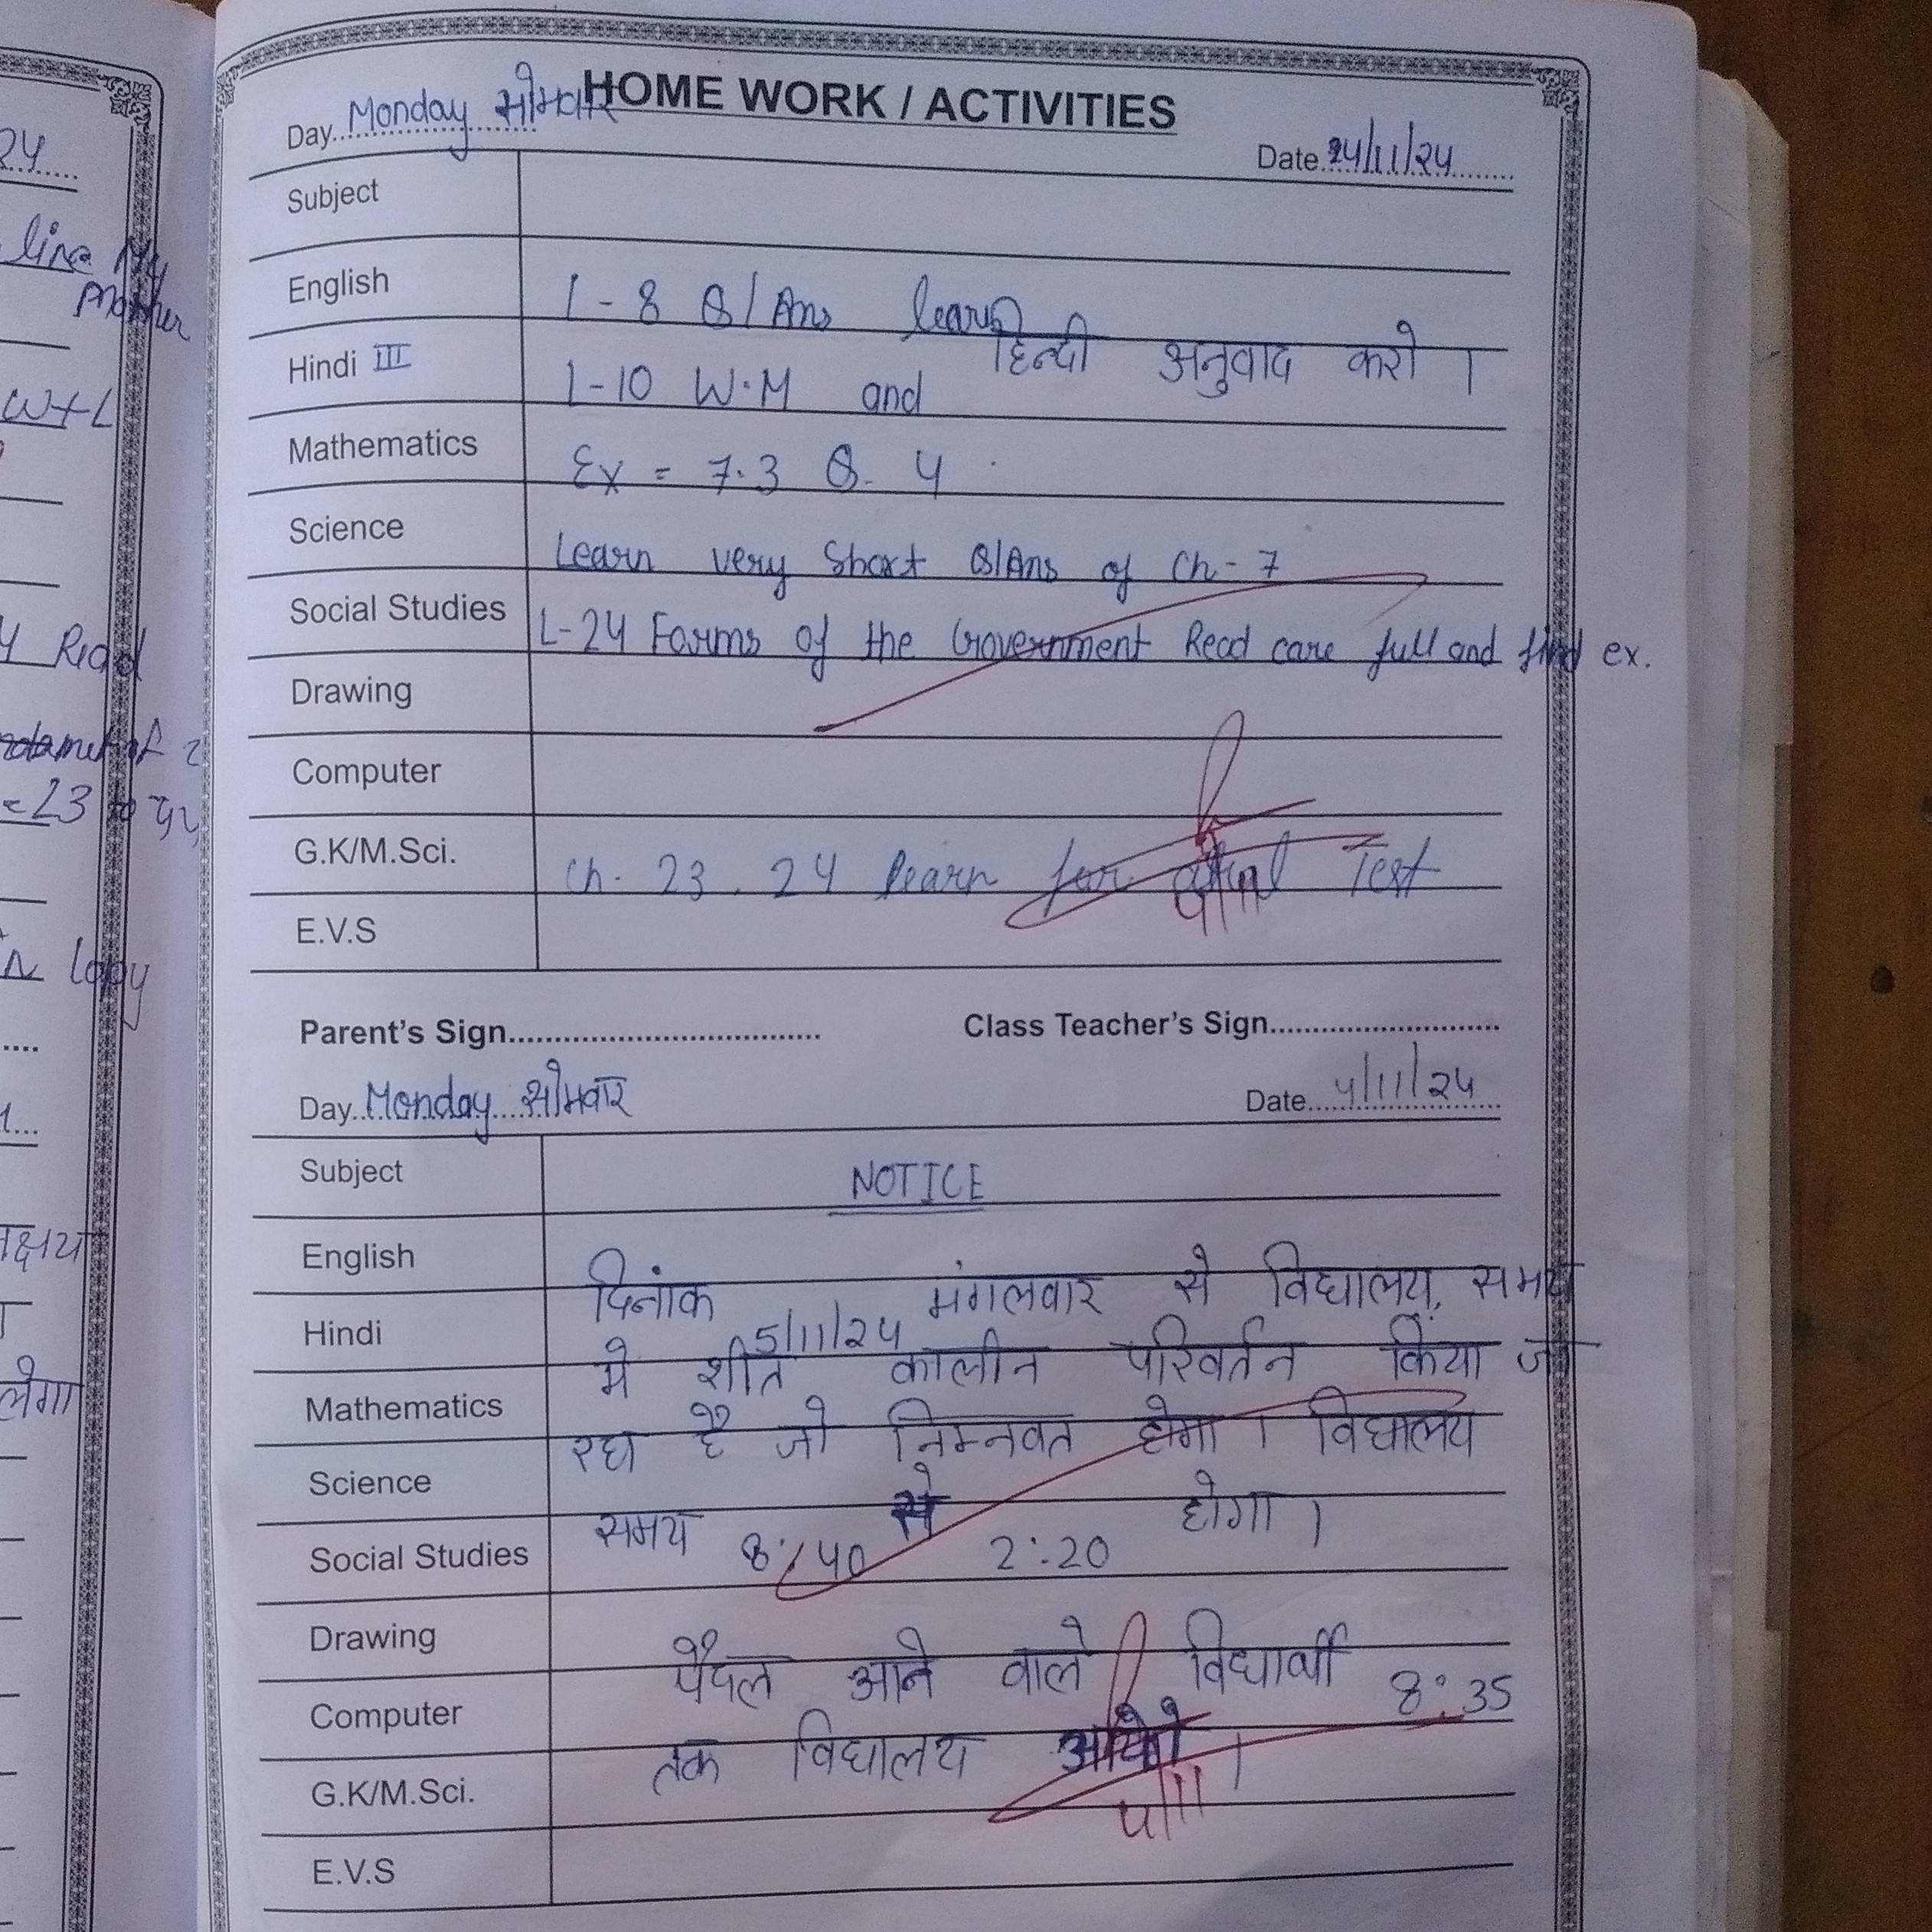 HOME WORK / ACTIVITIES
Day Monday सोमवार Date 4/11/24
Subject
English L-8 Q/Ans learn
Hindi III L-10 W.M and हिन्दी अनुवाद करो ।
Mathematics Ex = 7.3 Q. 4
Science Learn very Short Q/Ans of Ch-7
Social Studies L-24 Forms of the Government Read care full and find ex.
Drawing
Computer
G.K/M.Sci. Ch. 23, 24 learn for Test
E.V.S
4/11
Parent's Sign Class Teacher's Sign
Day Monday सोमवार Date 4/11/24
Subject NOTICE
English
दिनांक 5/11/24 मंगलवार से विद्यालय समय
Hindi
मे शीत कालीन परिवर्तन किया जा
Mathematics
रहा है जो निम्नवत होगा । विद्यालय
Science
समय 8:40 से 2:20 होगा ।
Social Studies
Drawing
पैदल आने वाले विद्यार्थी 8:35
Computer
तक विद्यालय ।
G.K/M.Sci.
4/11
E.V.S
24
line My
Mother
W+L
Read
=23 to 24
Copy